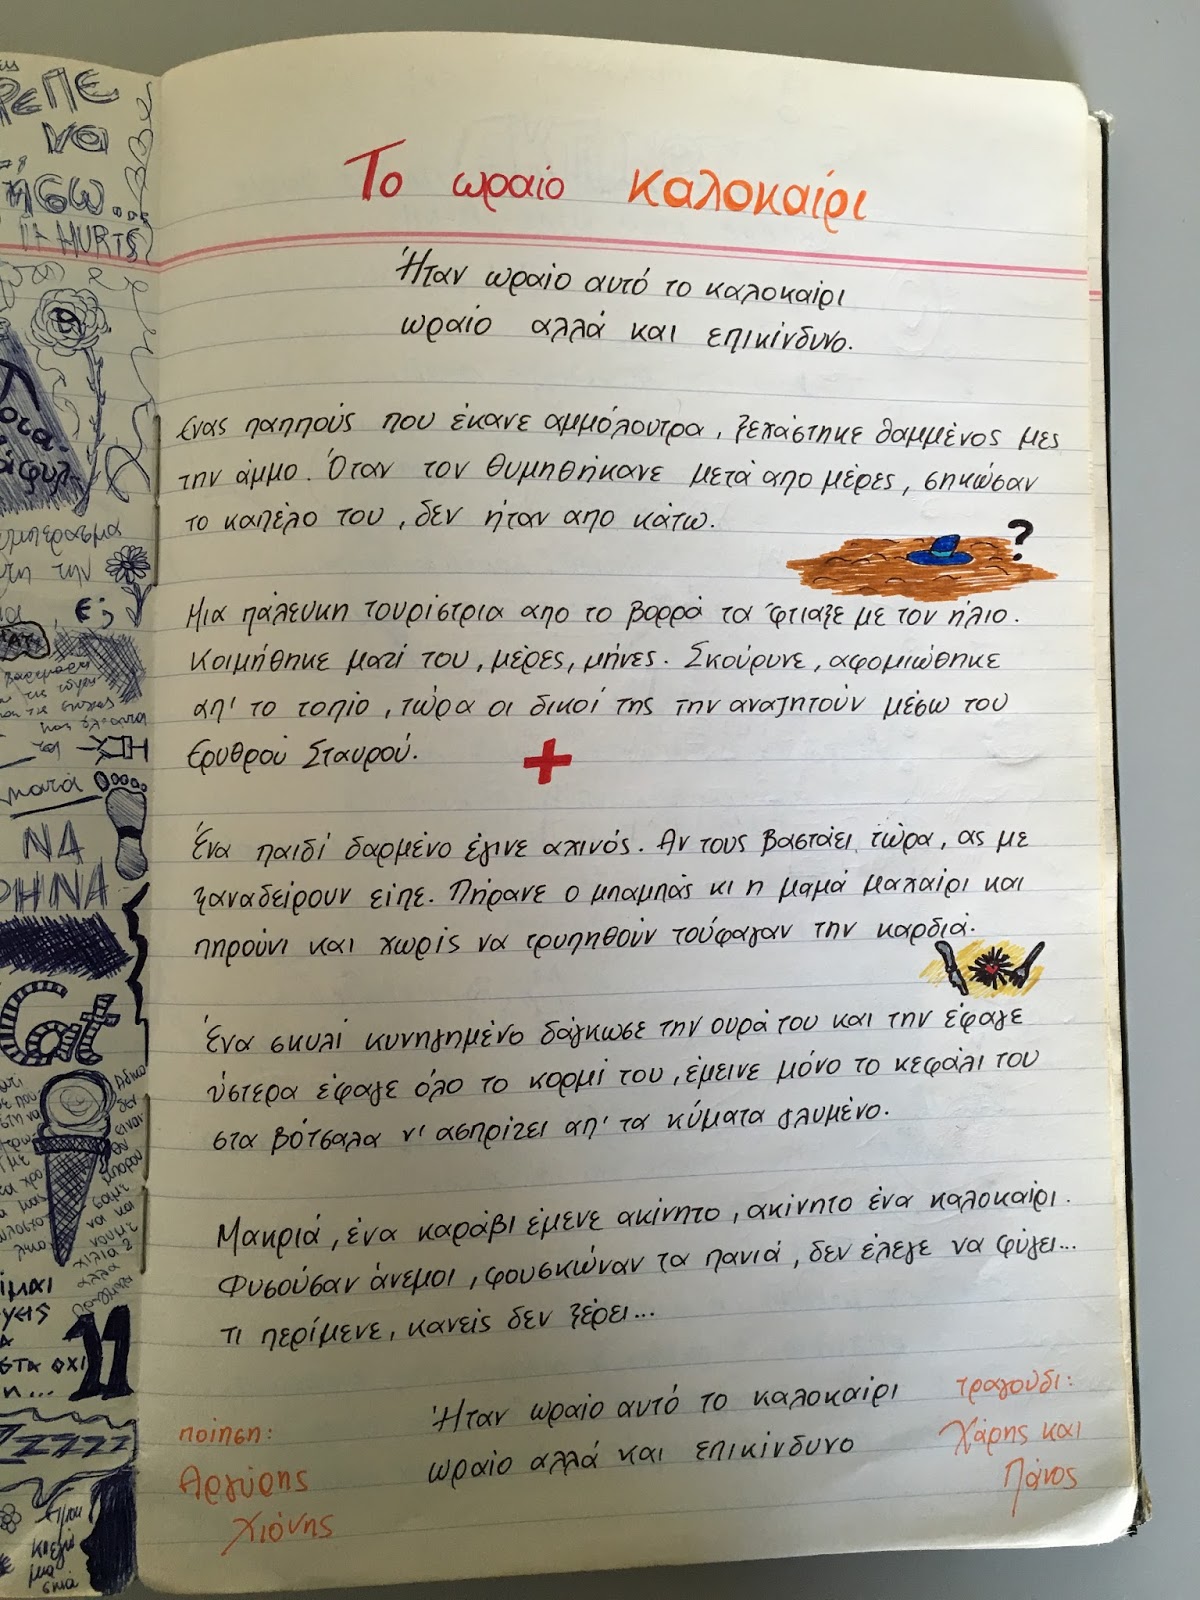 Το ωραίο καλοκαίρι
Ήταν ωραίο αυτό το καλοκαίρι
ωραίο αλλά και επικίνδυνο.
Ένας παππούς που έκανε αμμόλουτρα, ξεχάστηκε θαμμένος μες
την άμμο. Όταν τον θυμηθήκανε μετά απο μέρες, σηκώσαν
το καπέλο του, δεν ήταν απο κάτω.
?
Μια πάλευκη τουρίστρια απο το βορρά τα 'φτιαξε με τον ήλιο.
Κοιμήθηκε μαζί του, μέρες, μήνες. Σκούρυνε, αφομιώθηκε
απ' το τοπίο, τώρα οι δικοί της την αναζητούν μέσω του
Ερυθρού Σταυρού.
Ένα παιδί δαρμένο έγινε αχινός. Αν τους βαστάει τώρα, ας με
ξαναδείρουν είπε. Πήρανε ο μπαμπάς κι η μαμά μαχαίρι και
πηρούνι και χωρίς να τρυπηθούν τούφαγαν την καρδιά.
Ένα σκυλί κυνηγημένο δάγκωσε την ουρά του και την έφαγε
ύστερα έφαγε όλο το κορμί του, έμεινε μόνο το κεφάλι του
στα βότσαλα ν' ασπρίζει απ' τα κύματα γλυμένο.
Μακριά, ένα καράβι έμενε ακίνητο, ακίνητο ένα καλοκαίρι.
Φυσούσαν άνεμοι, φουσκώναν τα πανιά, δεν έλεγε να φύγει...
τι περίμενε, κανείς δεν ξέρει...
Ήταν ωραίο αυτό το καλοκαίρι
ωραίο αλλά και επικίνδυνο
ποίηση:
Αργύρης
Χιόνης
τραγούδι:
Χάρης και
Πάνος
να
IT HURTS
την
ΝΑ
Cat
11
zzzzz
μια
σκιά